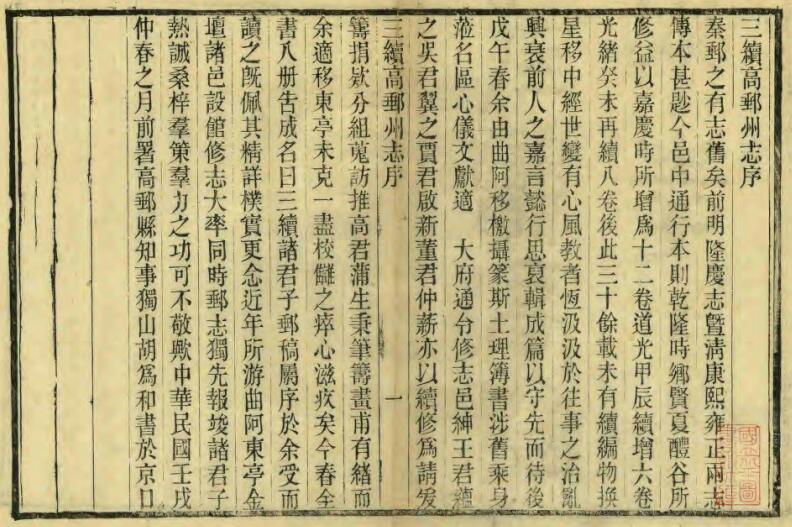 三續高郵州志序
秦郵之有志舊矣前明隆慶志暨清康熙雍正兩志
傳本甚尠今邑中通行本則乾隆時鄉賢夏醴谷所
修益以嘉慶時所增爲十二卷道光甲辰續增六卷
光緒癸未再續八卷後此三十餘載未有續編物換
星移中經世變有心風教者恆汲汲於往事之治亂
興衰前人之嘉言懿行思裒輯成篇以守先而待後
戊午春余由曲阿移檄攝篆斯土理簿書涉舊乘身
蒞名區心儀文獻適 大府通令修志邑紳王君蘊
之吳君翼之賈君啟新董君仲薪亦以續修爲請爰
三續高郵州志序 一
籌捐欵分組蒐訪推高君蒲生秉筆籌畫甫有緒而
余適移東亭未克一盡校讎之瘁心滋疚矣今春全
書八册告成名曰三續諸君子郵稿屬序於余受而
讀之旣佩其精詳樸實更念近年所游曲阿東亭金
壇諸邑設館修志大率同時郵志獨先報竣諸君子
熱誠桑梓羣策羣力之功可不敬歟中華民國壬戌
仲春之月前署高郵縣知事獨山胡爲和書於京口